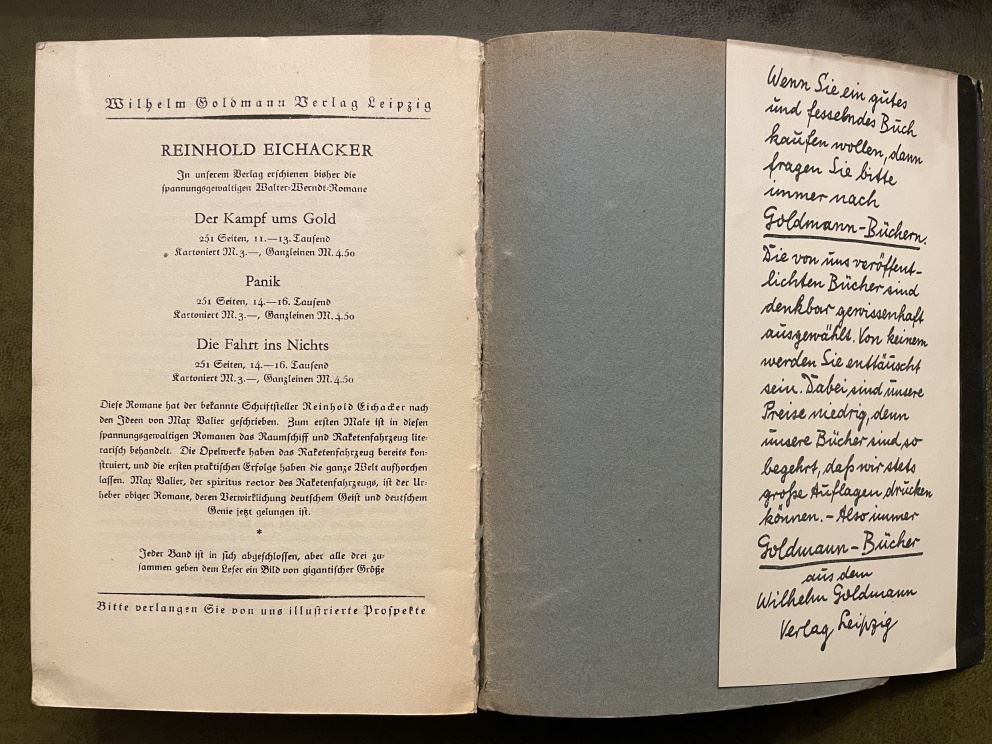 Wilhelm Goldmann Verlag Leipzig
REINHOLD EICHACKER
In unserem Verlag erschienen bisher die
spannungsgewaltigen Walter-Werndt-Romane
Der Kampf ums Gold
251 Seiten, 11.—13. Tausend
Kartoniert M. 3.—, Ganzleinen M. 4.50
Panik
251 Seiten, 14.—16. Tausend
Kartoniert M. 3.—, Ganzleinen M. 4.50
Die Fahrt ins Nichts
251 Seiten, 14.—16. Tausend
Kartoniert M. 3.—, Ganzleinen M. 4.50
Diese Romane hat der bekannte Schriftsteller Reinhold Eichacker nach
den Ideen von Max Valier geschrieben. Zum ersten Male ist in diesen
spannungsgewaltigen Romanen das Raumschiff und Raketenfahrzeug lite-
rarisch behandelt. Die Opelwerke haben das Raketenfahrzeug bereits kon-
struiert, und die ersten praktischen Erfolge haben die ganze Welt aufhorchen
lassen. Max Valier, der spiritus rector des Raketenfahrzeugs, ist der Ur-
heber obiger Romane, deren Verwirklichung deutschem Geist und deutschem
Genie jetzt gelungen ist.
*
Jeder Band ist in sich abgeschlossen, aber alle drei zu-
sammen geben dem Leser ein Bild von gigantischer Größe
Bitte verlangen Sie von uns illustrierte Prospekte
Wenn Sie ein gutes
und fesselndes Buch
kaufen wollen, dann
fragen Sie bitte
immer nach
Goldmann-Büchern.
Die von uns veröffent-
lichten Bücher sind
denkbar gewissenhaft
ausgewählt. Von keinem
werden Sie enttäuscht
sein. Dabei sind unsere
Preise niedrig, denn
unsere Bücher sind so
begehrt, daß wir stets
große Auflagen drucken
können. – Also immer
Goldmann-Bücher
aus dem
Wilhelm Goldmann
Verlag Leipzig